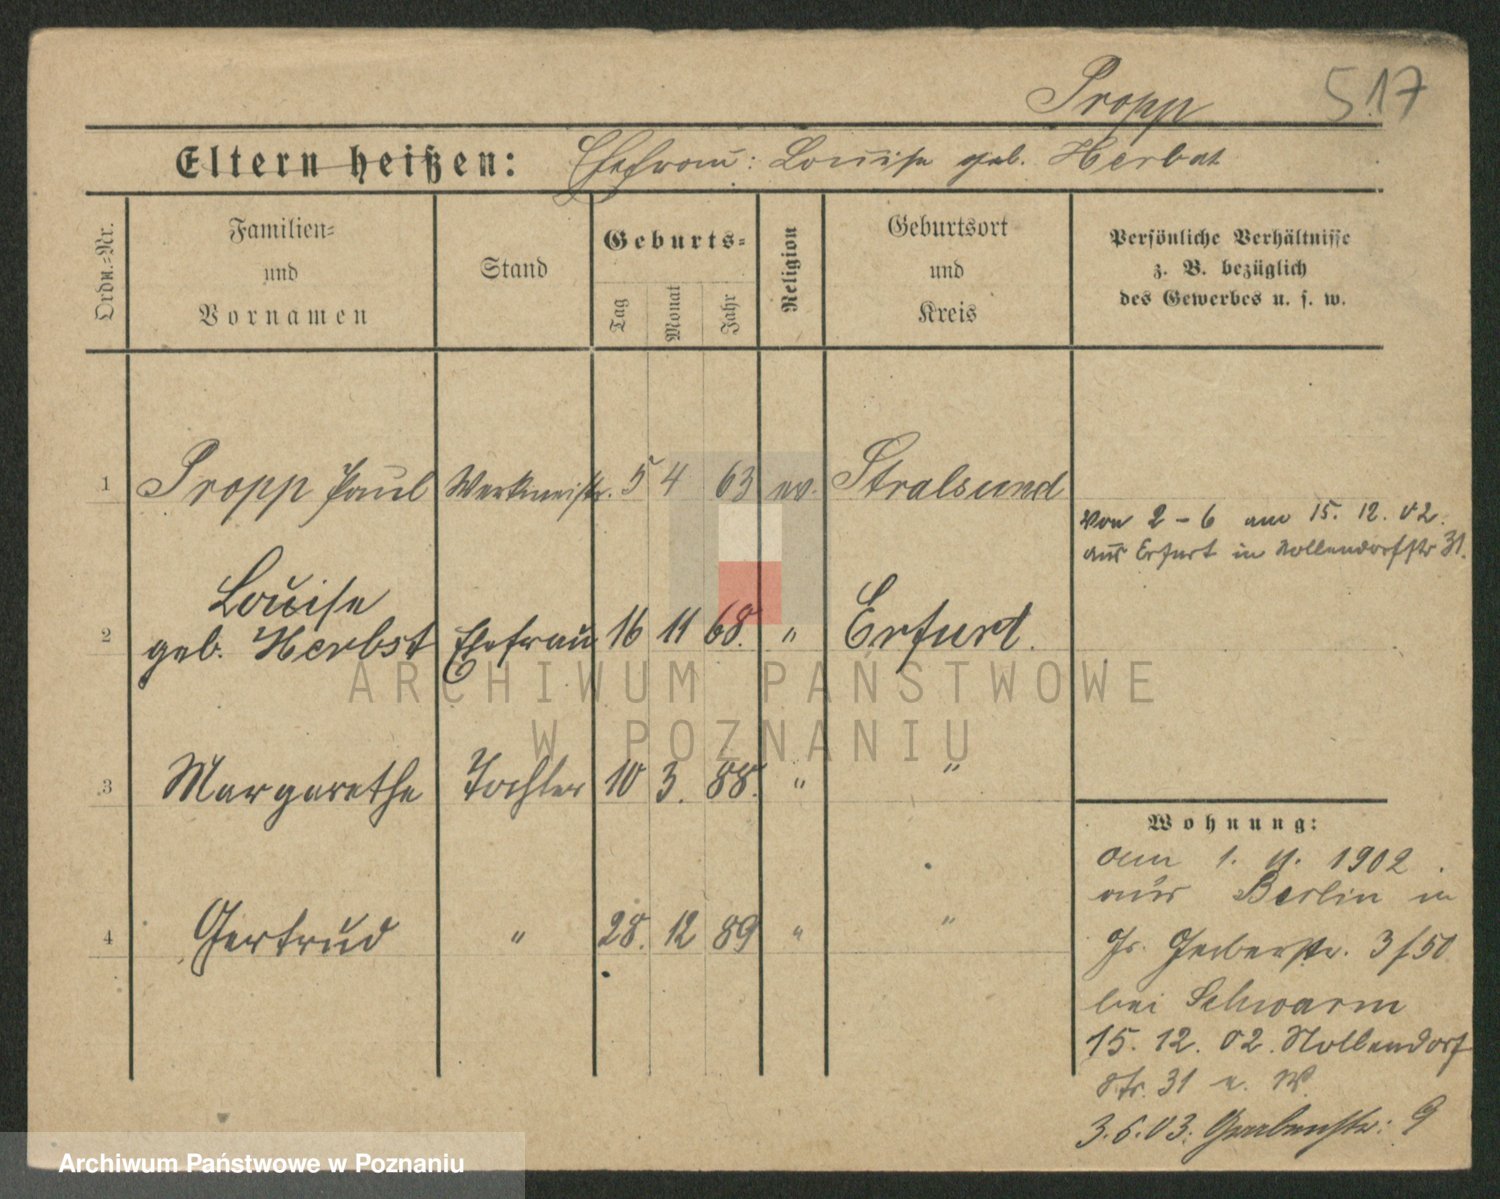 Propp 517
Eltern heißen: Ehefrau: Louise geb. Herbst
Ordn.=Nr.
Familien=
und
Vornamen
Stand
Geburts=
Tag
Monat
Jahr
Religion
Geburtsort
und
Kreis
Persönliche Verhältnisse
z. B. bezüglich
des Gewerbes u. s. w.
1 Propp Paul Werkmeistr. 5 4 63 ev. Stralsund
von 2 - 6 am 15. 12. 02.
aus Erfurt in Nollendorfstr 31.
Louise
2 geb. Herbst Ehefrau 16 11 68. " Erfurt.
3 Margarethe Tochter 10 3. 88. " "
4 Gertrud " 28. 12 89 " "
Wohnung:
am 1. 11. 1902.
aus Berlin in
Gr. Gerberstr. 3/50
bei Schwarm
15. 12. 02. Nollendorf
str. 31 u. W.
3.6.03. Grabenstr: 9
ARCHIWUM PAŃSTWOWE
W POZNANIU
Archiwum Państwowe w Poznaniu